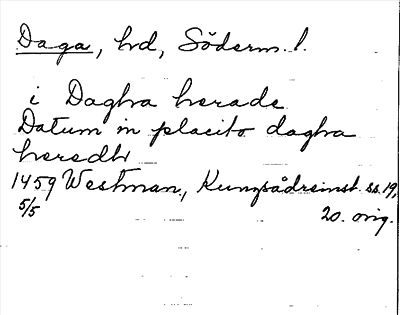 Daga, hd, Söderm. l.
i Daghra herade
Datum in placito daghra
heredh
1459 Westman, Kungsådreinst. ss. 19,
5/5 20. orig.